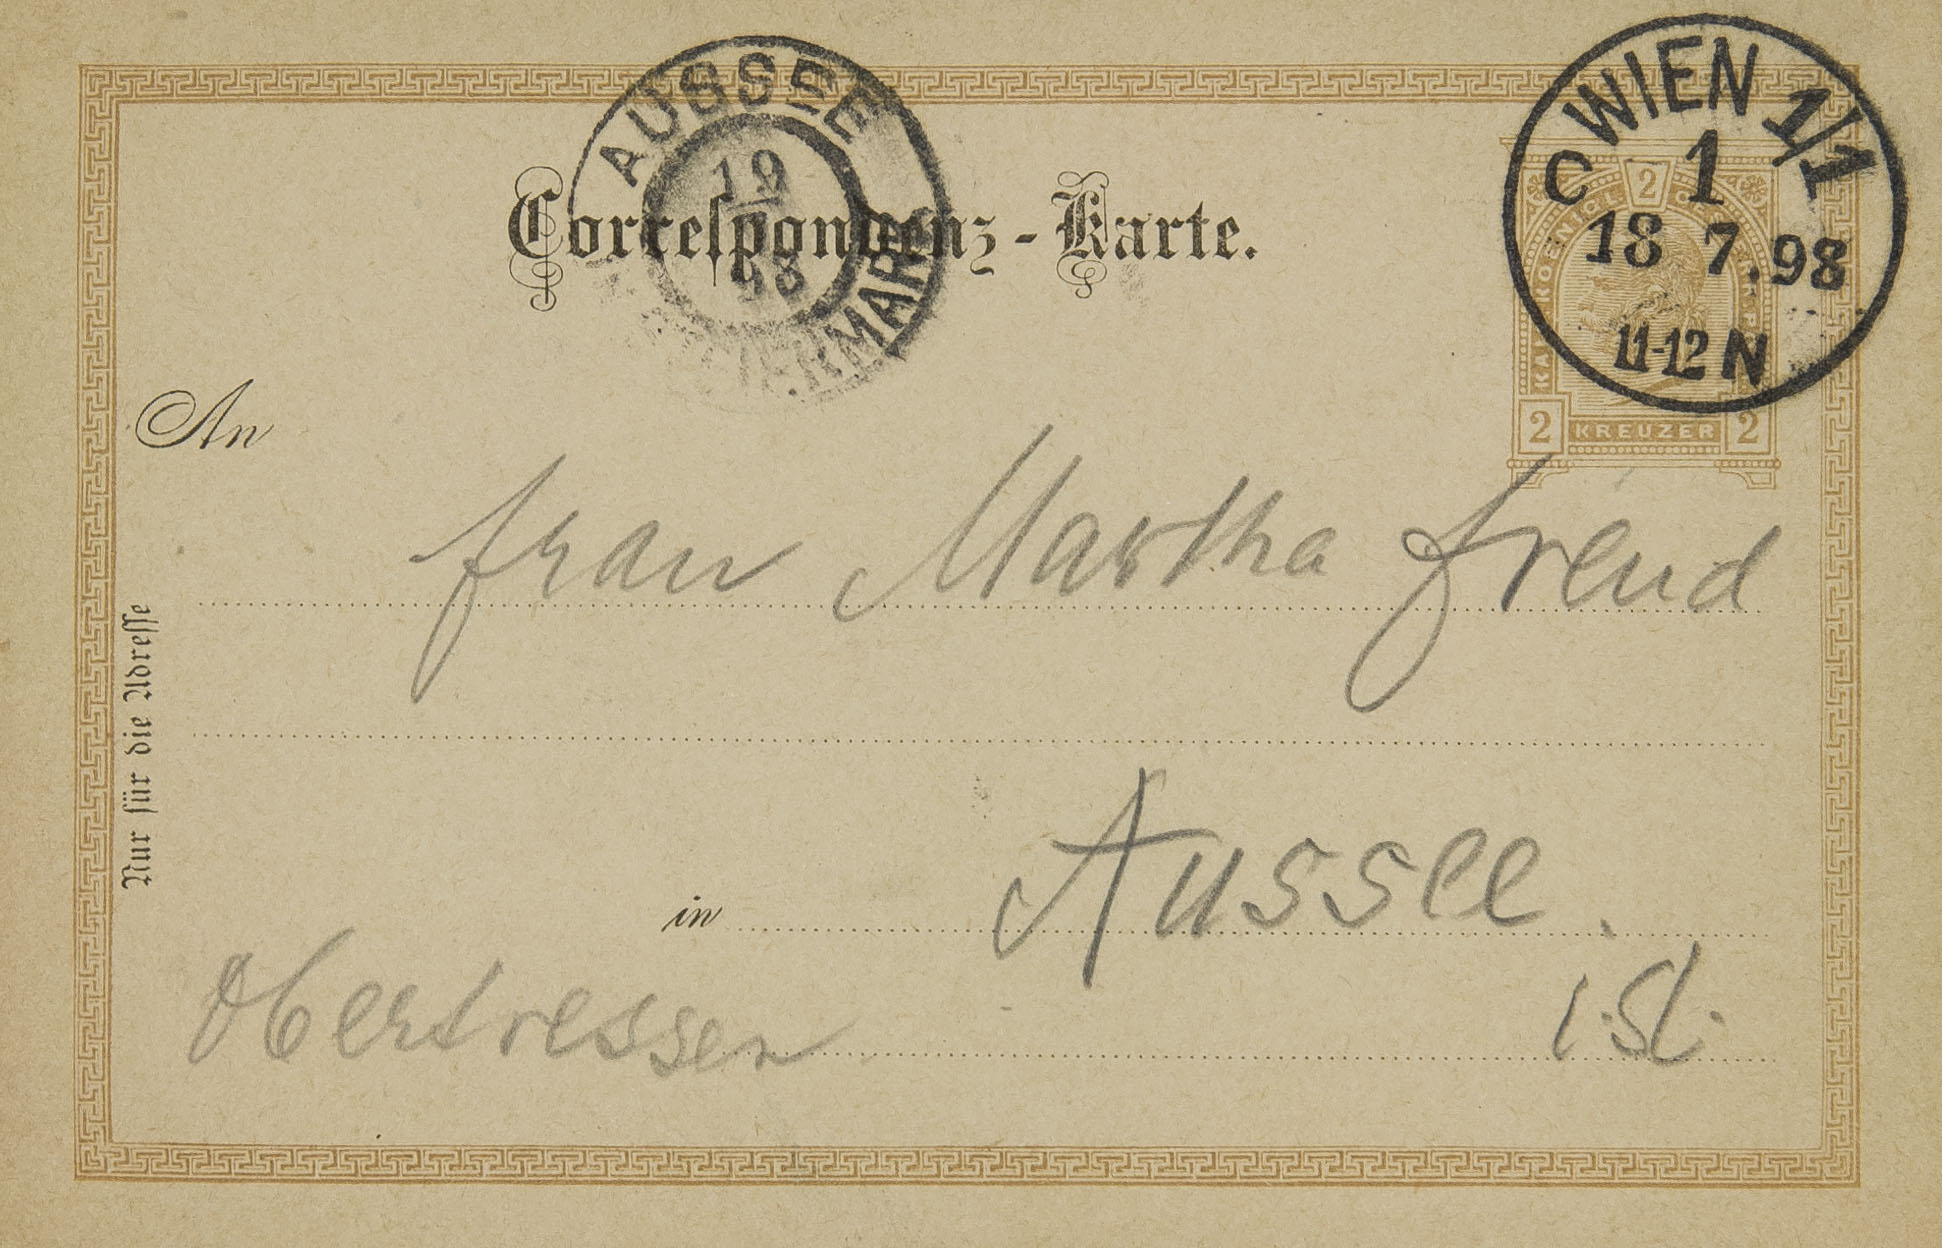 AUSSEE
19
98
WIEN 1/1
C 1
18 7.98
11-12 N
2
2 KREUZER 2
Correſpondenz-Karte.
An
Frau Martha Freud
in Aussee.
Obertressen i. St.
Nur für die Adreſſe